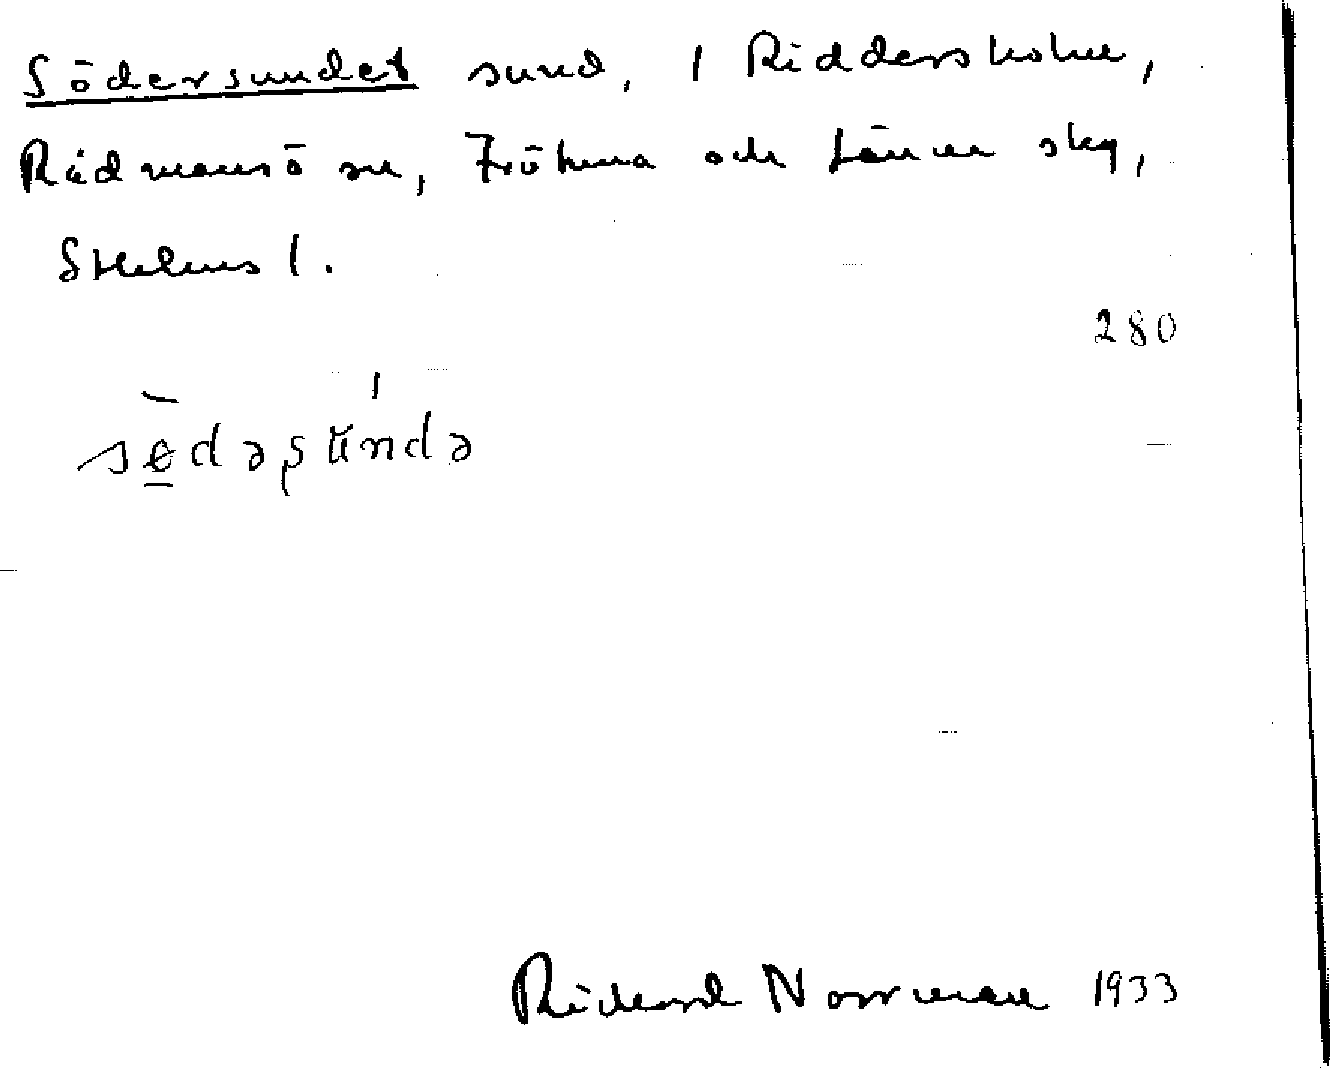 Södersundet sund, i Riddersholm,
Rådmansö sn, Frötuna och Länna skg,
Sthlms l.
280
södəşùndə
Rickard Norrman 1933